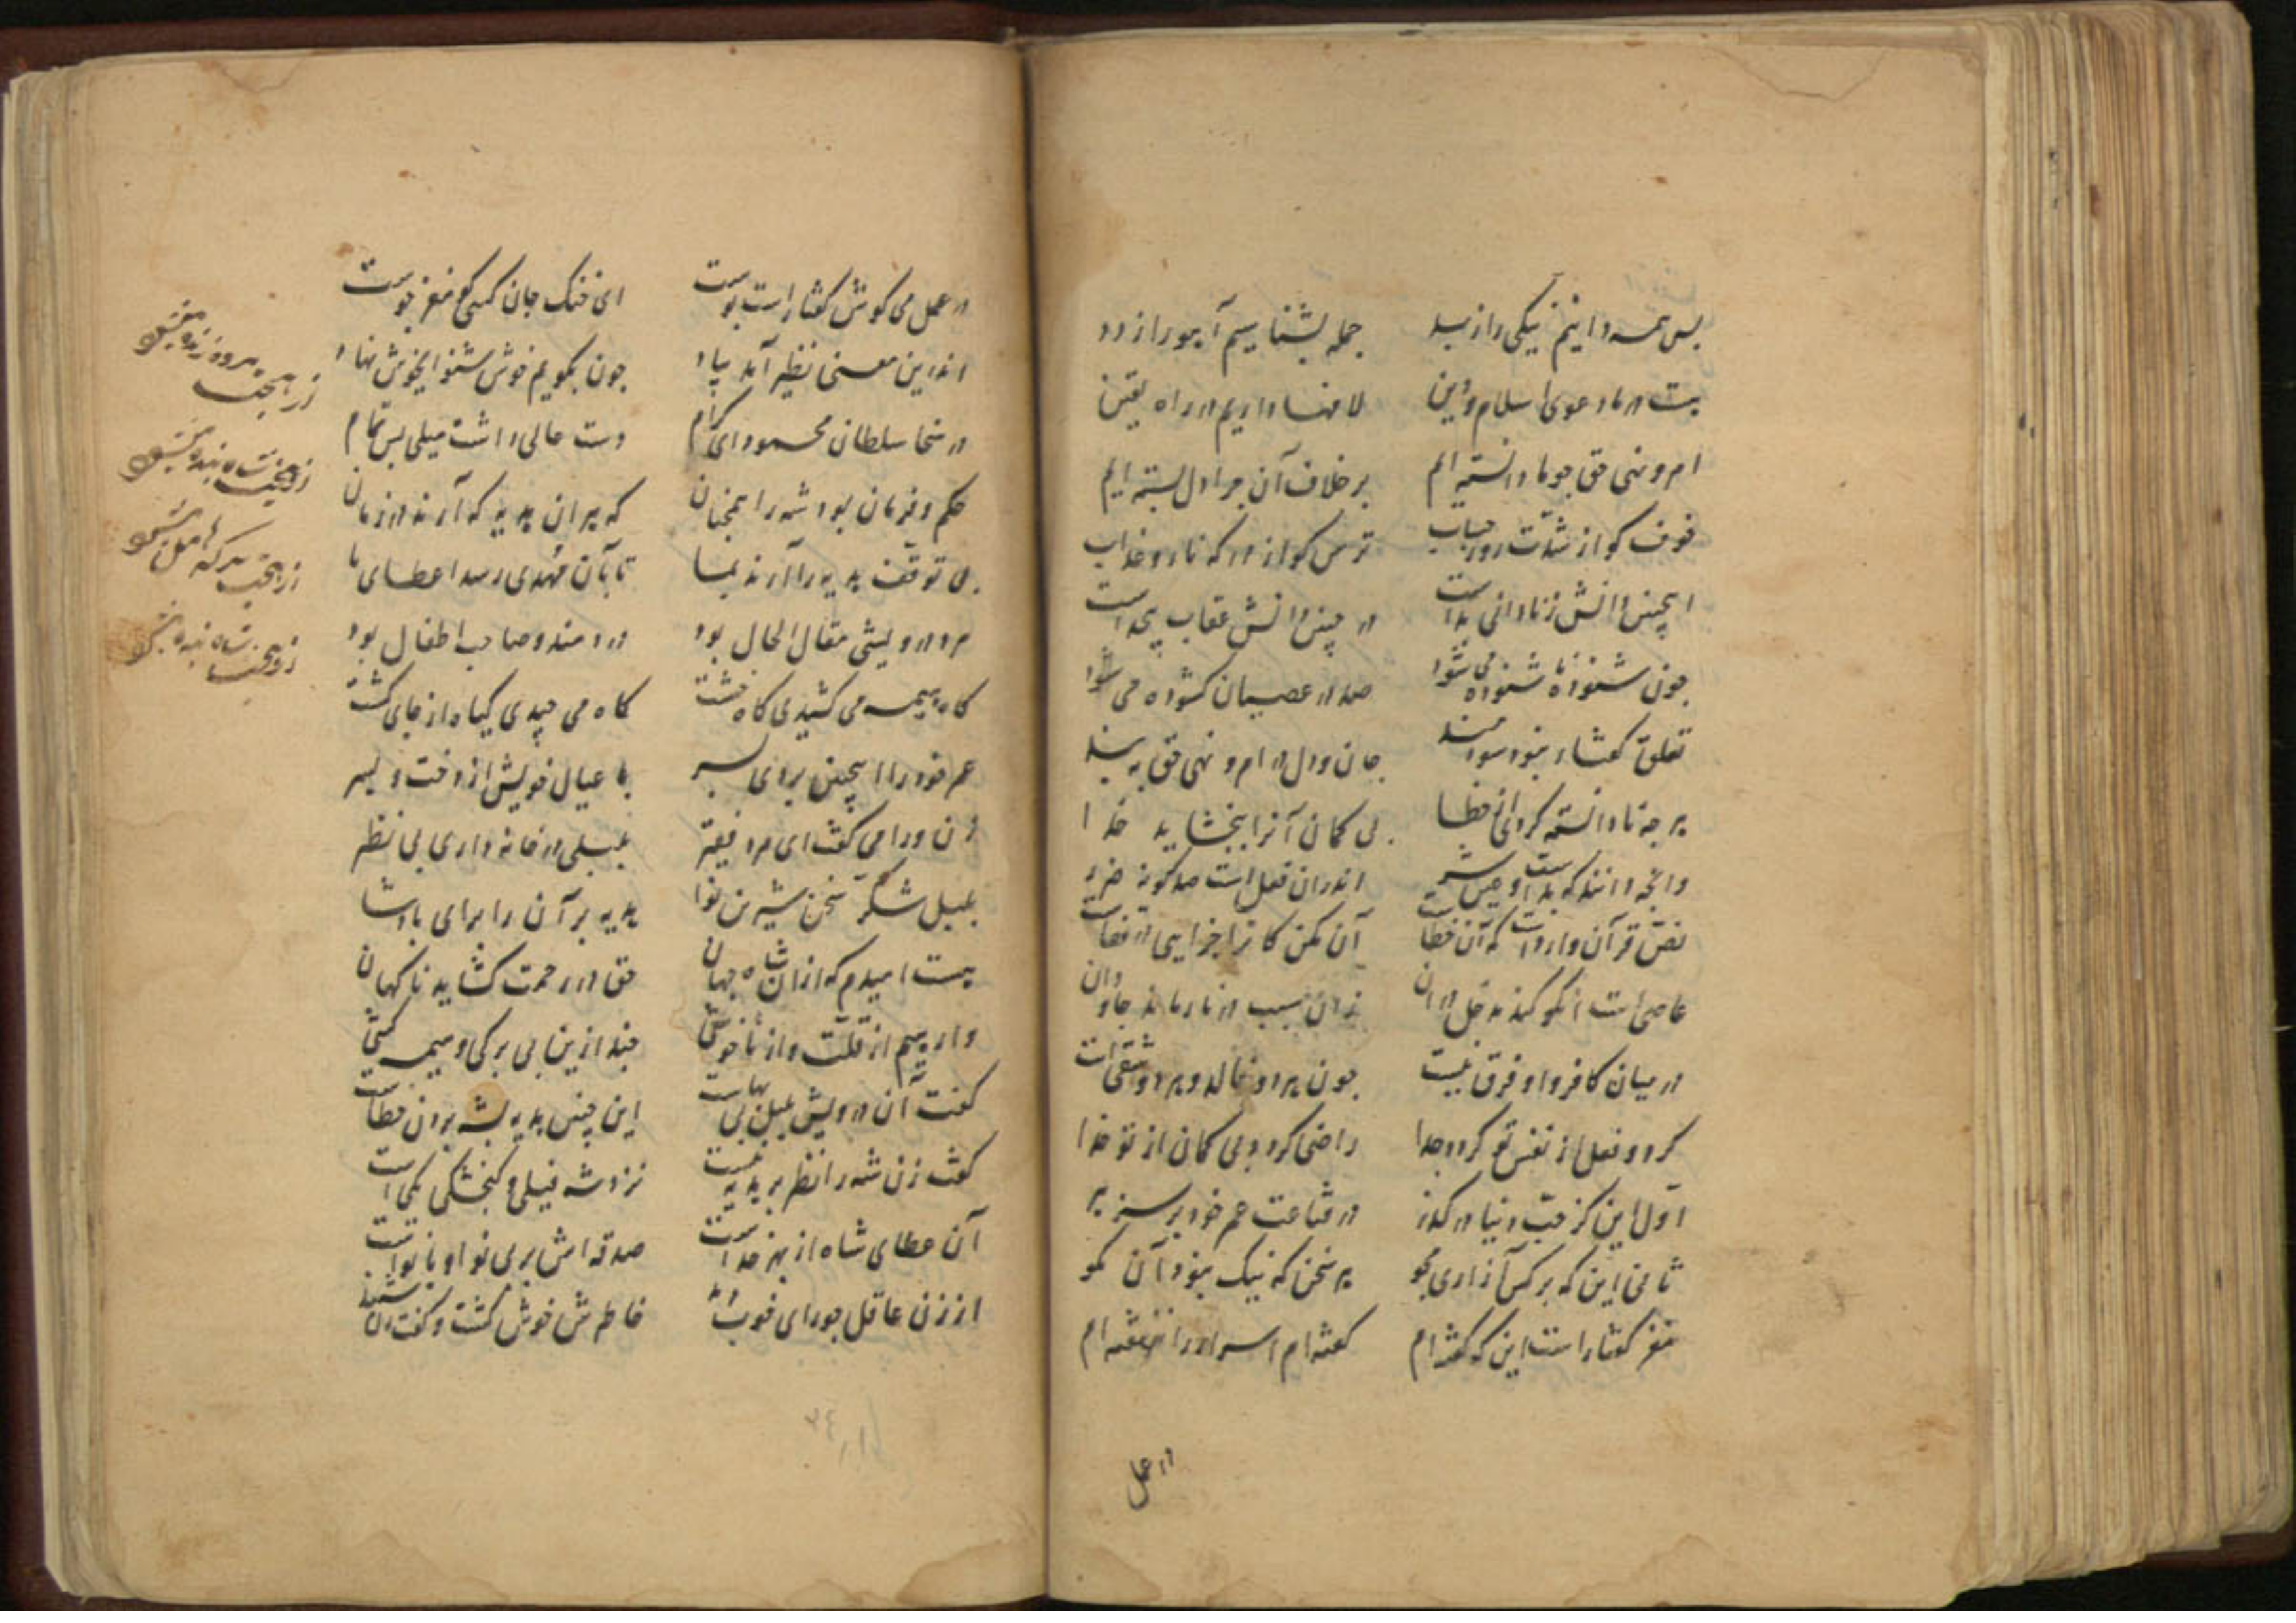 پس همه دانیم نیکی را ز بد جمله بشناسیم آیو را ز دد
هست در ما دعوی اسلام و دین لافها داریم در راه یقین
امر و نهی حق چو ما دانسته ایم بر خلاف آن چرا دل بسته ایم
خوف کو از شدت روز حساب ترس کو از درکه نار و عذاب
اینچنین دانش ز نادانی بد است در چنین دانش عقاب بیحد است
چون شنوده ناشنوده می شود صد در عصیان کشوده می شود
تعلق کفتار نبود سودمند جان و دل در امر و نهی حق ببند
هر چه نادانسته کردی از خطا بی کمان آنرا ببخشاید خدا
وانچه دانند که بد است و عین شر اندران فعل است صد کونه ضرر
نص قرآن وارد است که آن خطاست آن مکن کانرا جزایی در قفاست
عاصی است انکو کند مدخل در ان زان سبب در نار ماند جاودان
در میان کافر و او فرق نیست چون هر دو خالد و هر دو شقی است
کر دو فعل از نفس تو کردد جدا راضی کردد بی کمان از تو خدا
اول این کز حب دنیا در کذر در قناعت عمر خود بر سر ببر
ثانی این که بر کس آزاری مجو هر سخن که نیک نبود آن مکو
مغز کفتار است این که کفته ام کفته ام اسرار را ننهفته ام
در عمل
در عمل می کوش کفتار است پوست ای خنک جان کسی کو مغز جوست
اندرین معنی نظیر آمد بیاد چون بکویم خوش شنو ای خوش نهاد
در سخا سلطان محمود ای کرام دست عالی داشت میلی بس تمام
حکم و فرمان بود شه را همچنان که هر ان هدیه که آرند در زمان
بی توقف هدیه را آرند بما تا بآن مهدی رسد اعطای ما
مرد درویشی مقال الحال بود دردمند و صاحب اطفال بود
کاه هیمه می کشیدی کاه خشت کاه می چیدی کیاه از جای کشت
عمر خود را اینچنین بردی بسر با عیال خویش از دخت و پسر
زن ورا می کفت ای مرد فقیر بلبلی در خانه داری بی نظیر
بلبل شکر سخن شیرین نوا هدیه بر آن را برای پادشا
هست امیدم که از ان شاه جهان حق در رحمت کشاید ناکهان
وارهیم از قلت و از ناخوشی چند ازین بی برکی و هیمه کشی
کفت آن درویش بلبل بی بهاست این چنین هدیه بشه بردن خطاست
کفت زن شه را نظر بر هدیه نیست نزد شه فیلی و کنجشکی یکی است
آن عطای شاه از بهر خداست صدقه اش بر بی نوا و بانواست
از زن عاقل چو رای خوب دید خاطرش خوش کشت و کفت